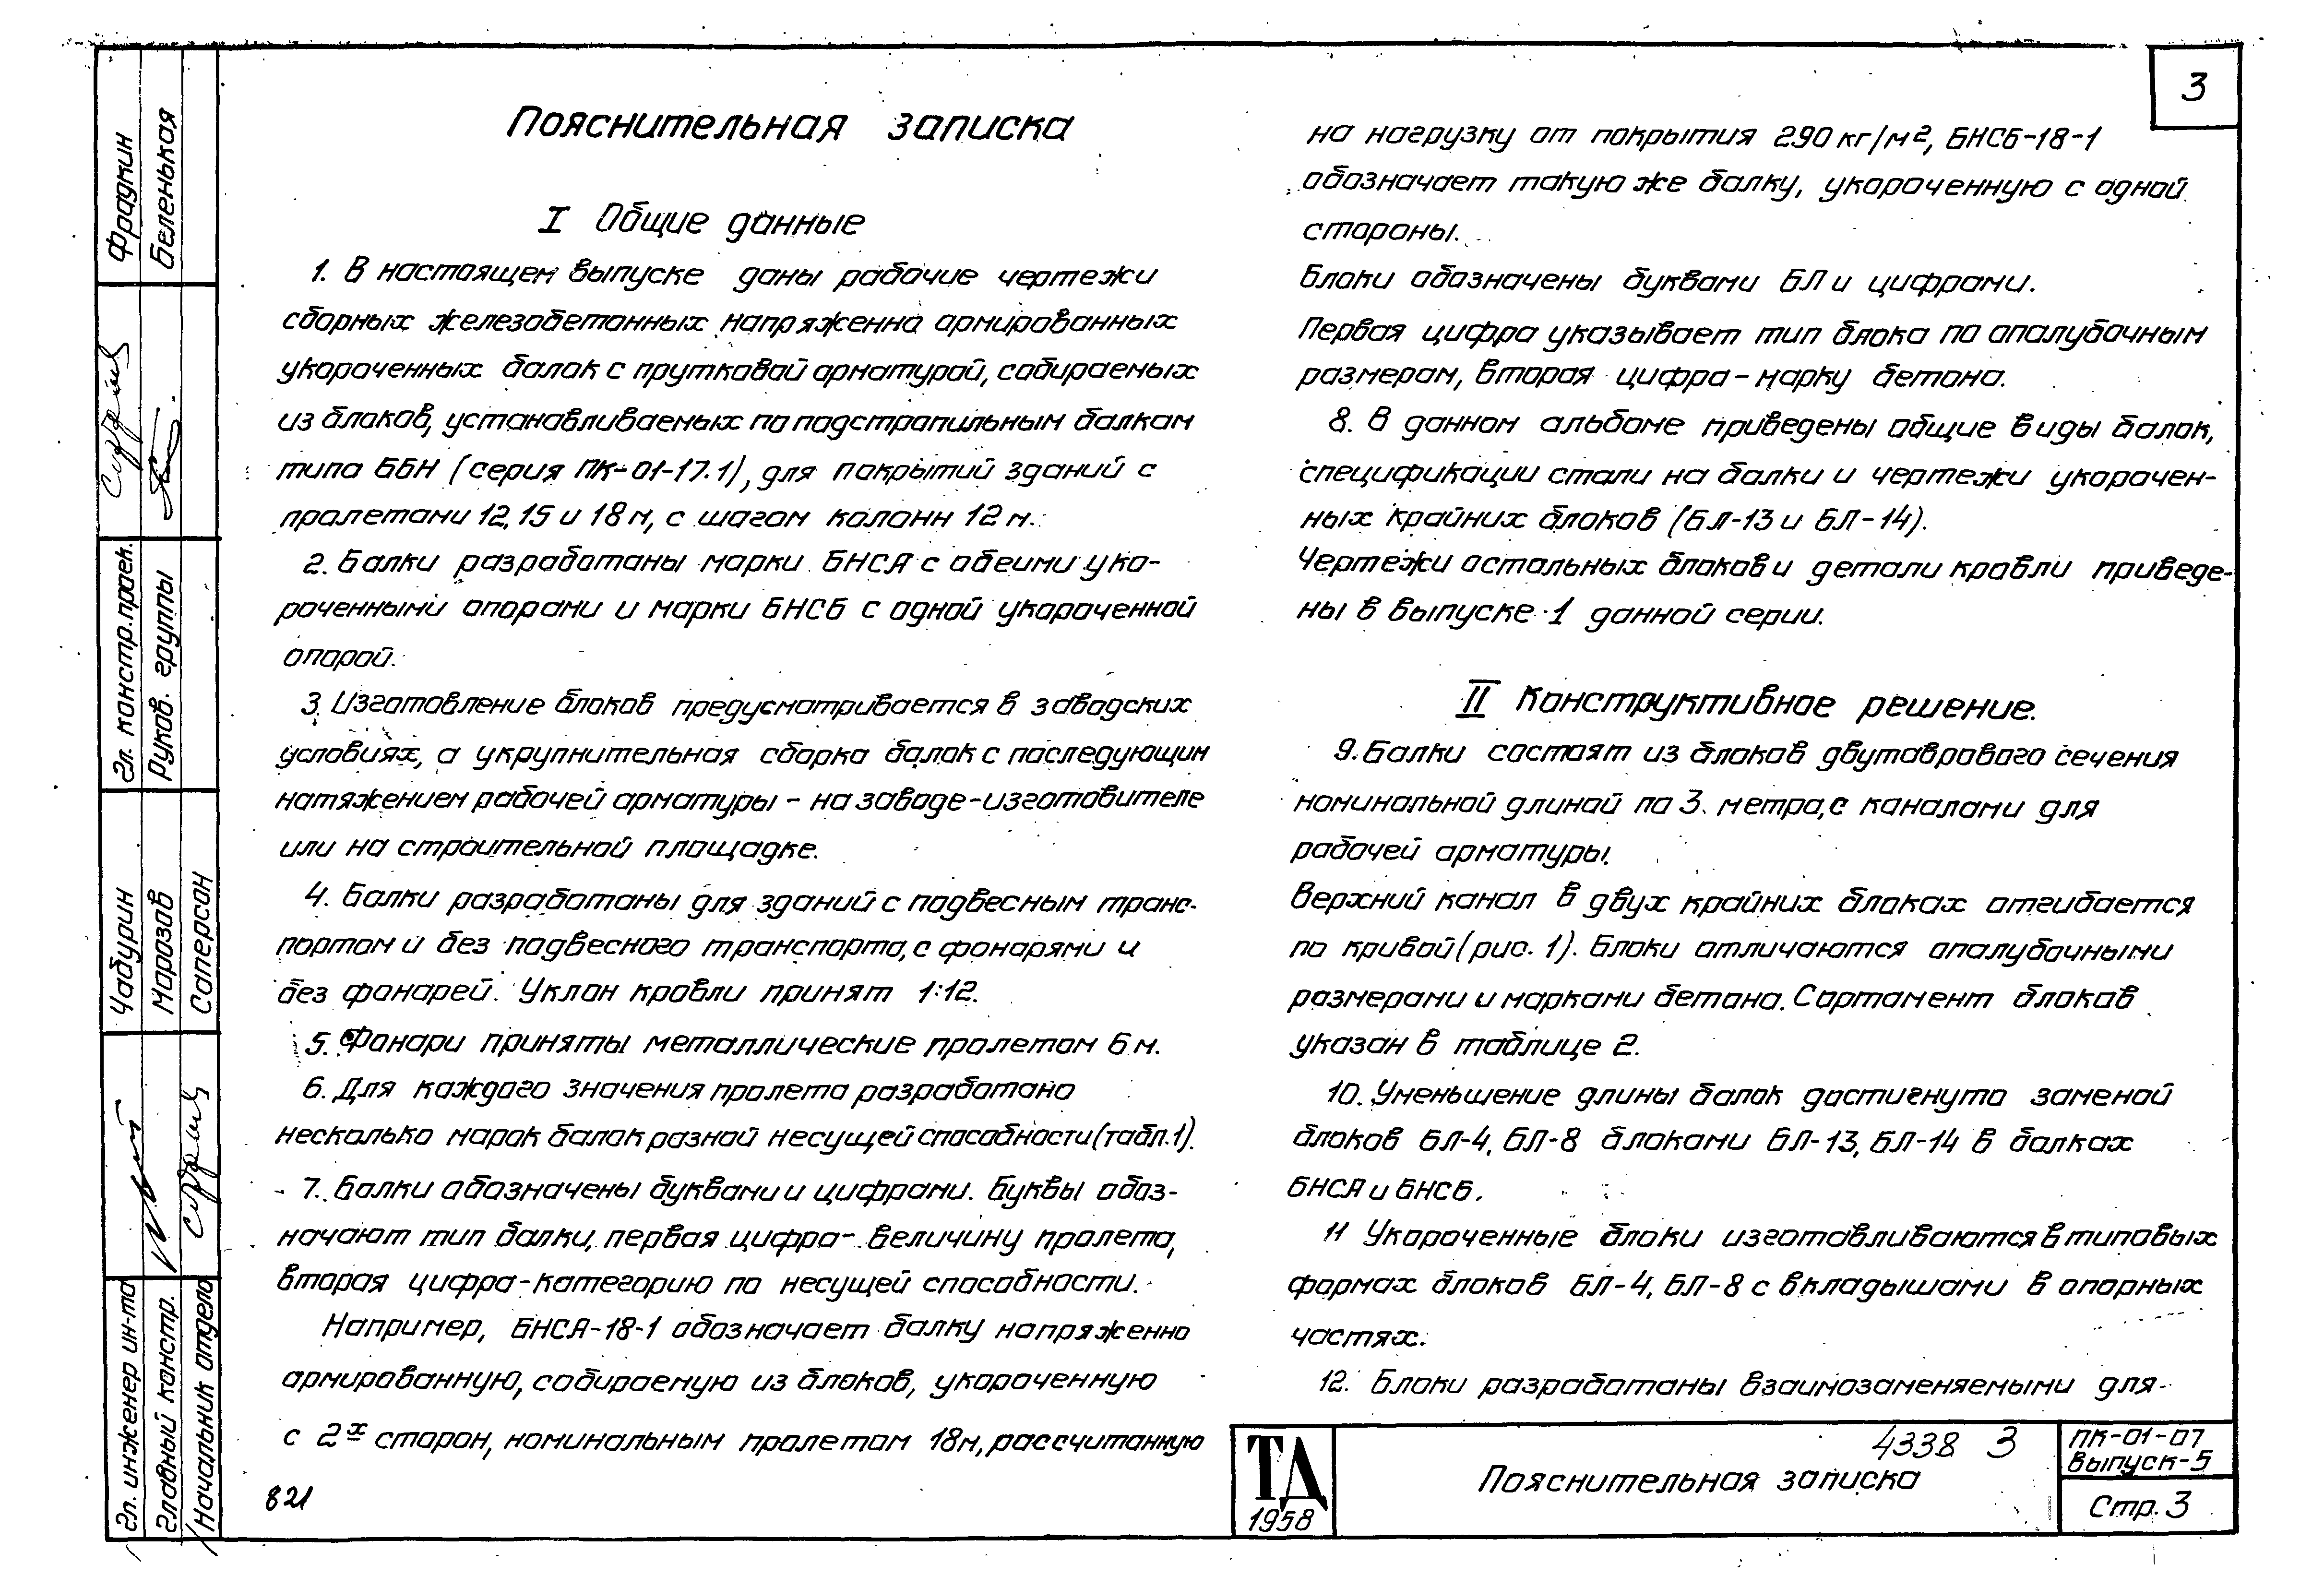 3
Пояснительная записка
I Общие данные
1. В настоящем выпуске даны рабочие чертежи
сборных железобетонных напряженно армированных
укороченных балок с прутковой арматурой, собираемых
из блоков, устанавливаемых по подстропильным балкам
типа ББН (серия ПК-01-17.1), для покрытий зданий с
пролетами 12, 15 и 18 м, с шагом колонн 12 м.
2. Балки разработаны марки БНСА с обеими уко-
роченными опорами и марки БНСБ с одной укороченной
опорой.
3. Изготовление блоков предусматривается в заводских
условиях, а укрупнительная сборка балок с последующим
натяжением рабочей арматуры - на заводе-изготовителе
или на строительной площадке.
4. Балки разработаны для зданий с подвесным транс-
портом и без подвесного транспорта, с фонарями и
без фонарей. Уклон кровли принят 1:12.
5. Фонари приняты металлические пролетом 6 м.
6. Для каждого значения пролета разработано
несколько марок балок разной несущей способности (табл.1).
7. Балки обозначены буквами и цифрами. Буквы обоз-
начают тип балки, первая цифра - величину пролета,
вторая цифра - категорию по несущей способности.
Например, БНСА-18-1 обозначает балку напряженно
армированную, собираемую из блоков, укороченную
с 2х сторон, номинальным пролетом 18м, рассчитанную
821
на нагрузку от покрытия 290 кг/м2, БНСБ-18-1
обозначает такую же балку, укороченную с одной
стороны.
Блоки обозначены буквами БЛ и цифрами.
Первая цифра указывает тип блока по опалубочным
размерам, вторая цифра - марку бетона.
8. В данном альбоме приведены общие виды балок,
спецификации стали на балки и чертежи укорочен-
ных крайних блоков (БЛ-13 и БЛ-14).
Чертежи остальных блоков и детали кровли приведе-
ны в выпуске 1 данной серии.
II Конструктивное решение.
9. Балки состоят из блоков двутаврового сечения
номинальной длиной по 3 метра, с каналами для
рабочей арматуры.
Верхний канал в двух крайних блоках отгибается
по кривой (рис. 1). Блоки отличаются опалубочными
размерами и марками бетона. Сортамент блоков
указан в таблице 2.
10. Уменьшение длины балок достигнуто заменой
блоков БЛ-4, БЛ-8 блоками БЛ-13, БЛ-14 в балках
БНСА и БНСБ.
11 Укороченные блоки изготавливаются в типовых
формах блоков БЛ-4, БЛ-8 с вкладышами в опорных
частях.
12. Блоки разработаны взаимозаменяемыми для
ТД
1958
Пояснительная записка
4338 3
ПК-01-07
выпуск-5
Стр. 3
Фрадкин
Беленькая
Гл. констр. проек.
Руков. группы
Чабурин
Морозов
Саперсон
Гл. инженер ин-та
Главный констр.
Начальник отдела